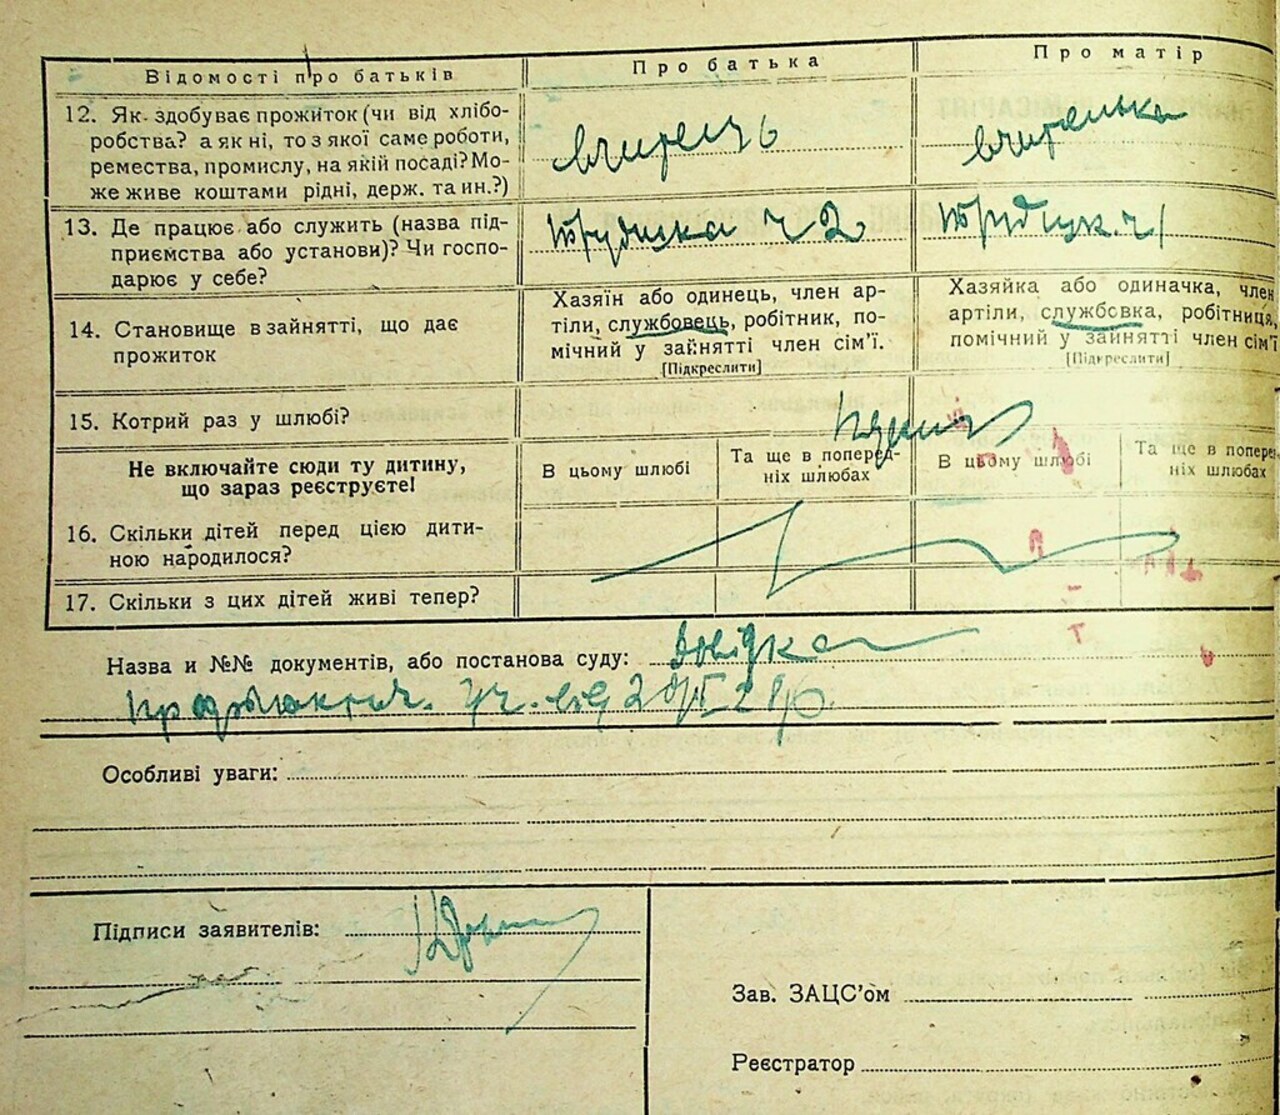 Відомості про батьків
Про батька
Про матір
12. Як здобуває прожиток (чи від хлібо-
робства? а як ні, то з якої саме роботи,
ремества, промислу, на якій посаді? Мо-
же живе коштами рідні, держ. та ин.?)
вчитель
вчителька
13. Де працює або служить (назва під-
приємства або установи)? Чи госпо-
дарює у себе?
14. Становище в зайнятті, що дає
прожиток
Хазяїн або одинець, член ар-
тіли, службовець, робітник, по-
мічний у зайнятті член сім’ї.
[Підкреслити]
Хазяйка або одиначка, член
артіли, службовка, робітниця,
помічний у зайнятті член сім’ї
[Підкреслити]
15. Котрий раз у шлюбі?
Не включайте сюди ту дитину,
що зараз реєструєте!
В цьому шлюбі
Та ще в поперед-
ніх шлюбах
В цьому шлюбі
Та ще в поперед-
ніх шлюбах
16. Скільки дітей перед цією дити-
ною народилося?
17. Скільки з цих дітей живі тепер?
Назва и №№ документів, або постанова суду: Довідка
від
Особливі уваги:
Підписи заявителів:
Зав. ЗАЦС’ом
Реєстратор